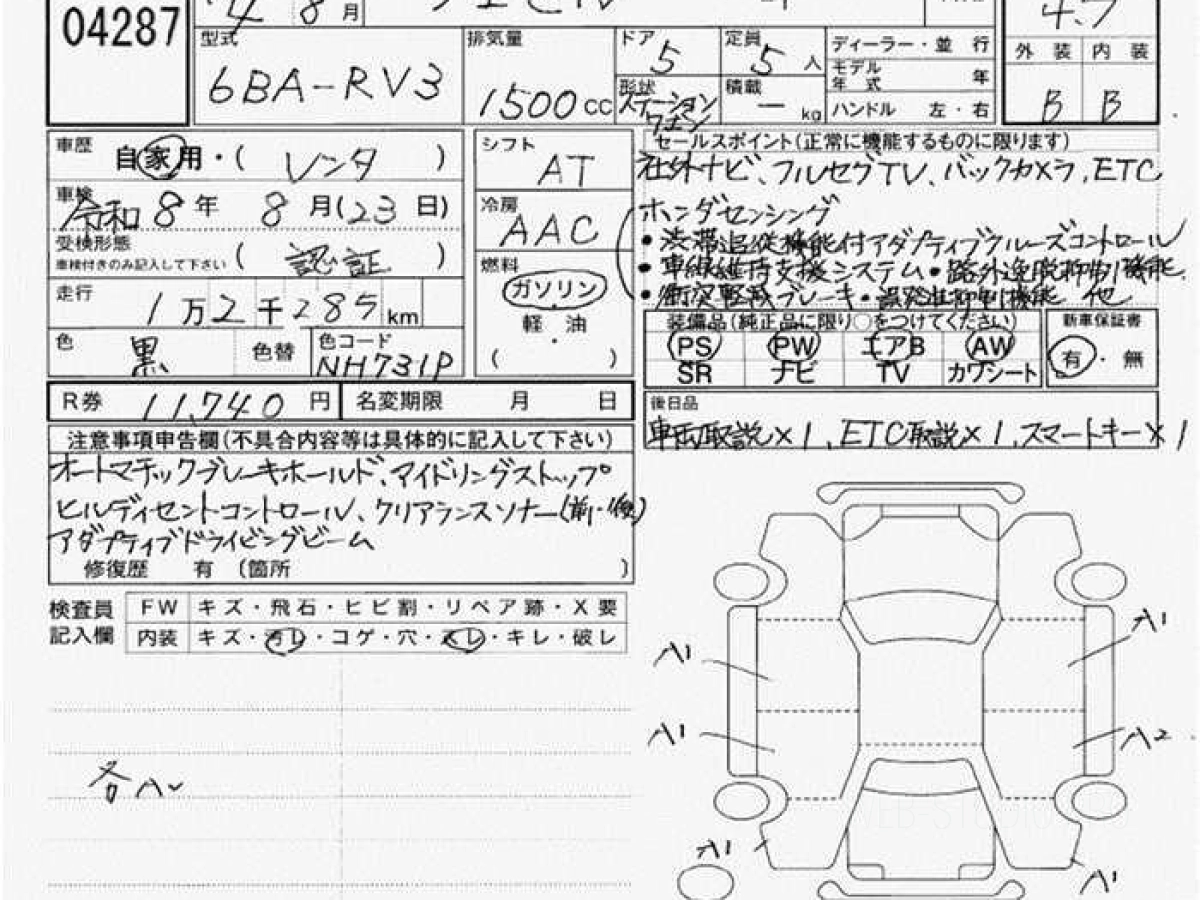 04287
4 8月
4.5
型式 6BA-RV3
排気量 1500cc
ドア 5
定員 5人
形状 ステーションワゴン
積載 ー kg
ディーラー・並行
モデル年式 年
ハンドル 左・右
外装 内装
B B
車歴 自家用・( レンタ )
車検 令和8年 8月(23日)
受検形態 車検付きのみ記入して下さい ( 認証 )
走行 1万2千285km
色 黒 色替
色コード NH731P
シフト AT
冷房 AAC
燃料 ガソリン・軽油 ( )
セールスポイント(正常に機能するものに限ります)
社外ナビ、フルセグTV、バックカメラ、ETC
ホンダセンシング
・渋滞追従機能付アダプティブクルーズコントロール
・車線維持支援システム・路外逸脱抑制機能
・衝突軽減ブレーキ・誤発進抑制機能 他
装備品(純正品に限り○をつけてください)
PS PW エアB AW
SR ナビ TV カワシート
新車保証書
有・無
R券 11,740円
名変期限 月 日
後日品
車両取説×1、ETC取説×1、スマートキー×1
注意事項申告欄(不具合内容等は具体的に記入して下さい)
オートマチックブレーキホールド、アイドリングストップ
ヒルディセントコントロール、クリアランスソナー(前・後)
アダプティブドライビングビーム
修復歴 有 (箇所 )
検査員記入欄
FW キズ・飛石・ヒビ割・リペア跡・X要
内装 キズ・汚レ・コゲ・穴・スレ・キレ・破レ
各A
A1 A1
A1 A2
A1 A1